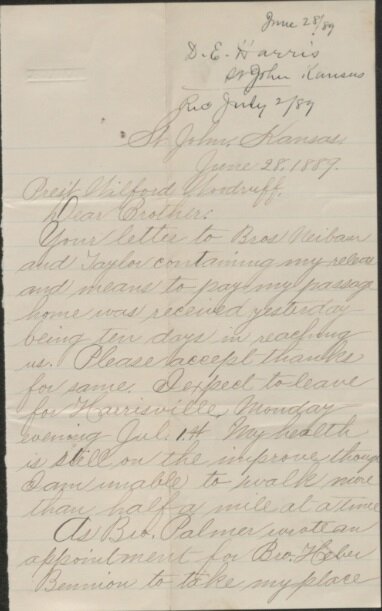 June 28/89
D. E. Harris
St John Kansas
Rec July 2/89
St. John, Kansas,
June 28, 1889.
Prest. Wilford Woodruff,
Dear Brother:
Your letter to Bros Neibaur
and Taylor containing my release
and means to pay my passage
home was received yesterday
being ten days in reaching
us. Please accept thanks
for same. I expect to leave
for Harrisville Monday
evening Jul. 1st. My health
is still on the improve though
I am unable to walk more
than half a mile at a time
As Bro. Palmer wrote an
appointment for Bro. Heber
Bennion to take my place